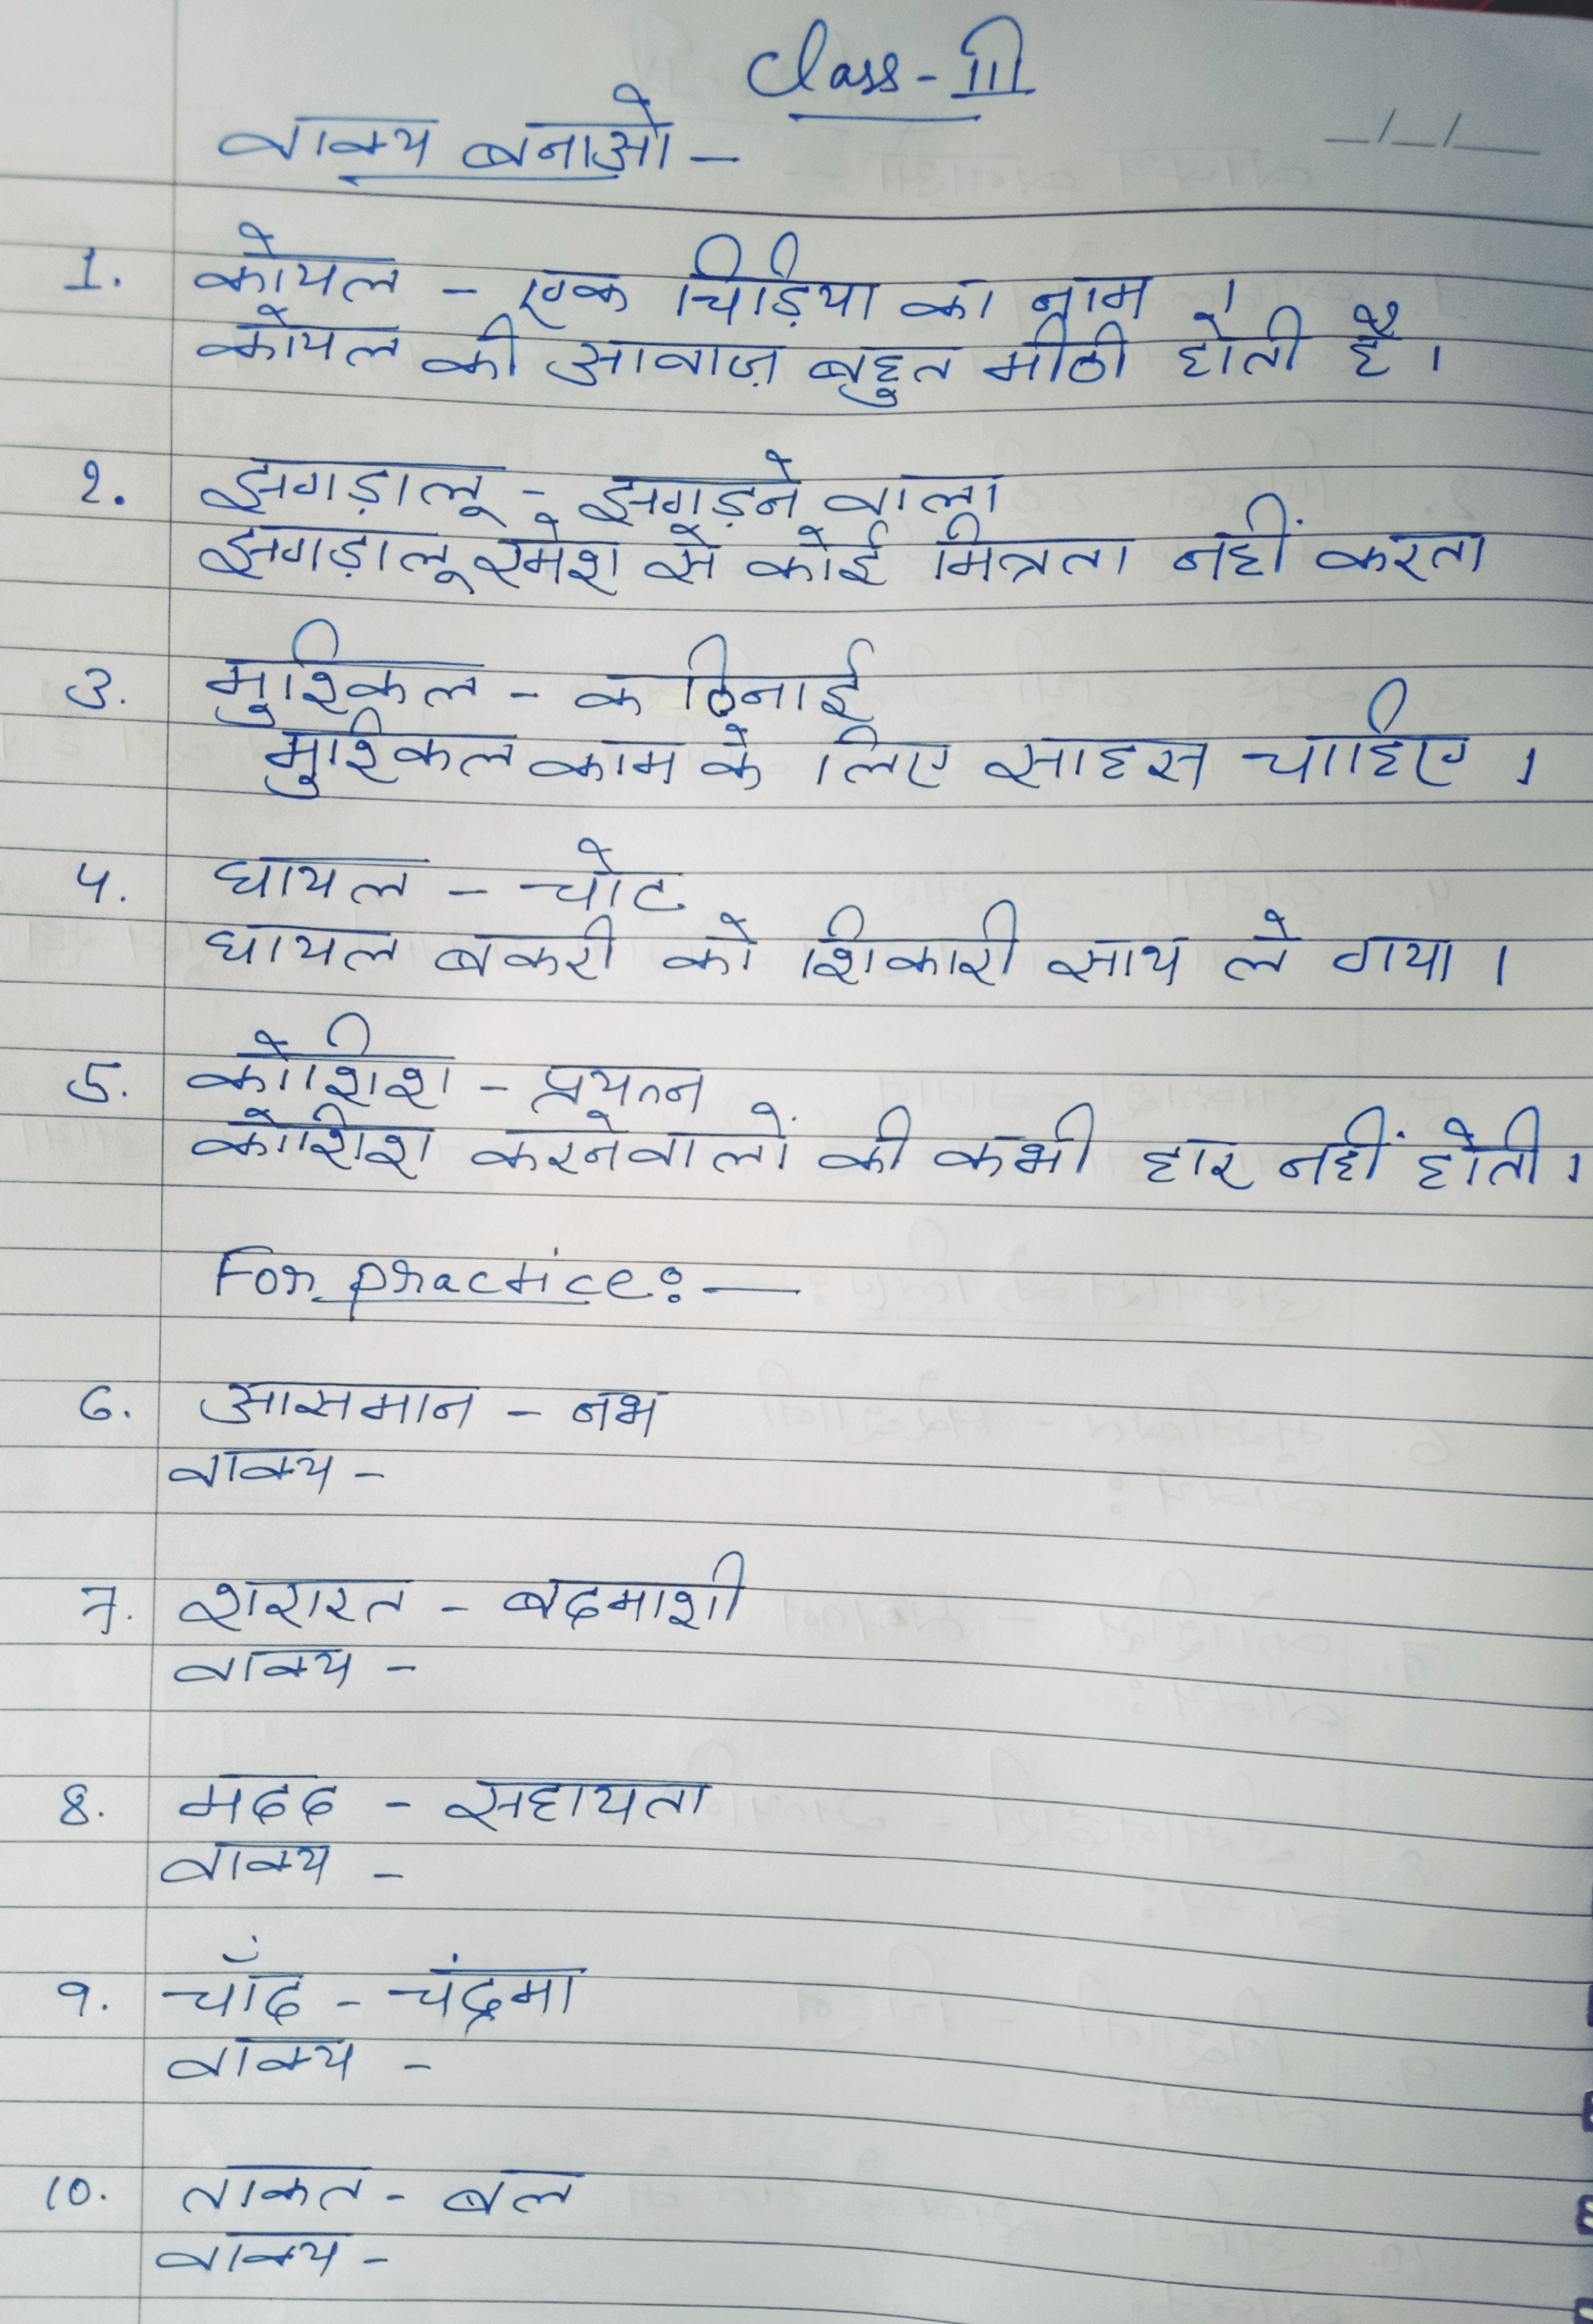 Class - III
वाक्य बनाओ -
_/_/__
1. कोयल - एक चिड़िया का नाम ।
कोयल की आवाज़ बहुत मीठी होती है ।
२. झगड़ालू - झगड़ने वाला
झगड़ालू रमेश से कोई मित्रता नहीं करता
3. मुश्किल - कठिनाई
मुश्किल काम के लिए साहस चाहिए ।
4. घायल - चोट
घायल बकरी को शिकारी साथ ले गया ।
5. कोशिश - प्रयत्न
कोशिश करनेवालों की कभी हार नहीं होती ।
For practice : —
6. आसमान - नभ
वाक्य -
7. शरारत - बदमाशी
वाक्य -
8. मदद - सहायता
वाक्य -
9. चाँद - चंद्रमा
वाक्य -
10. ताकत - बल
वाक्य -